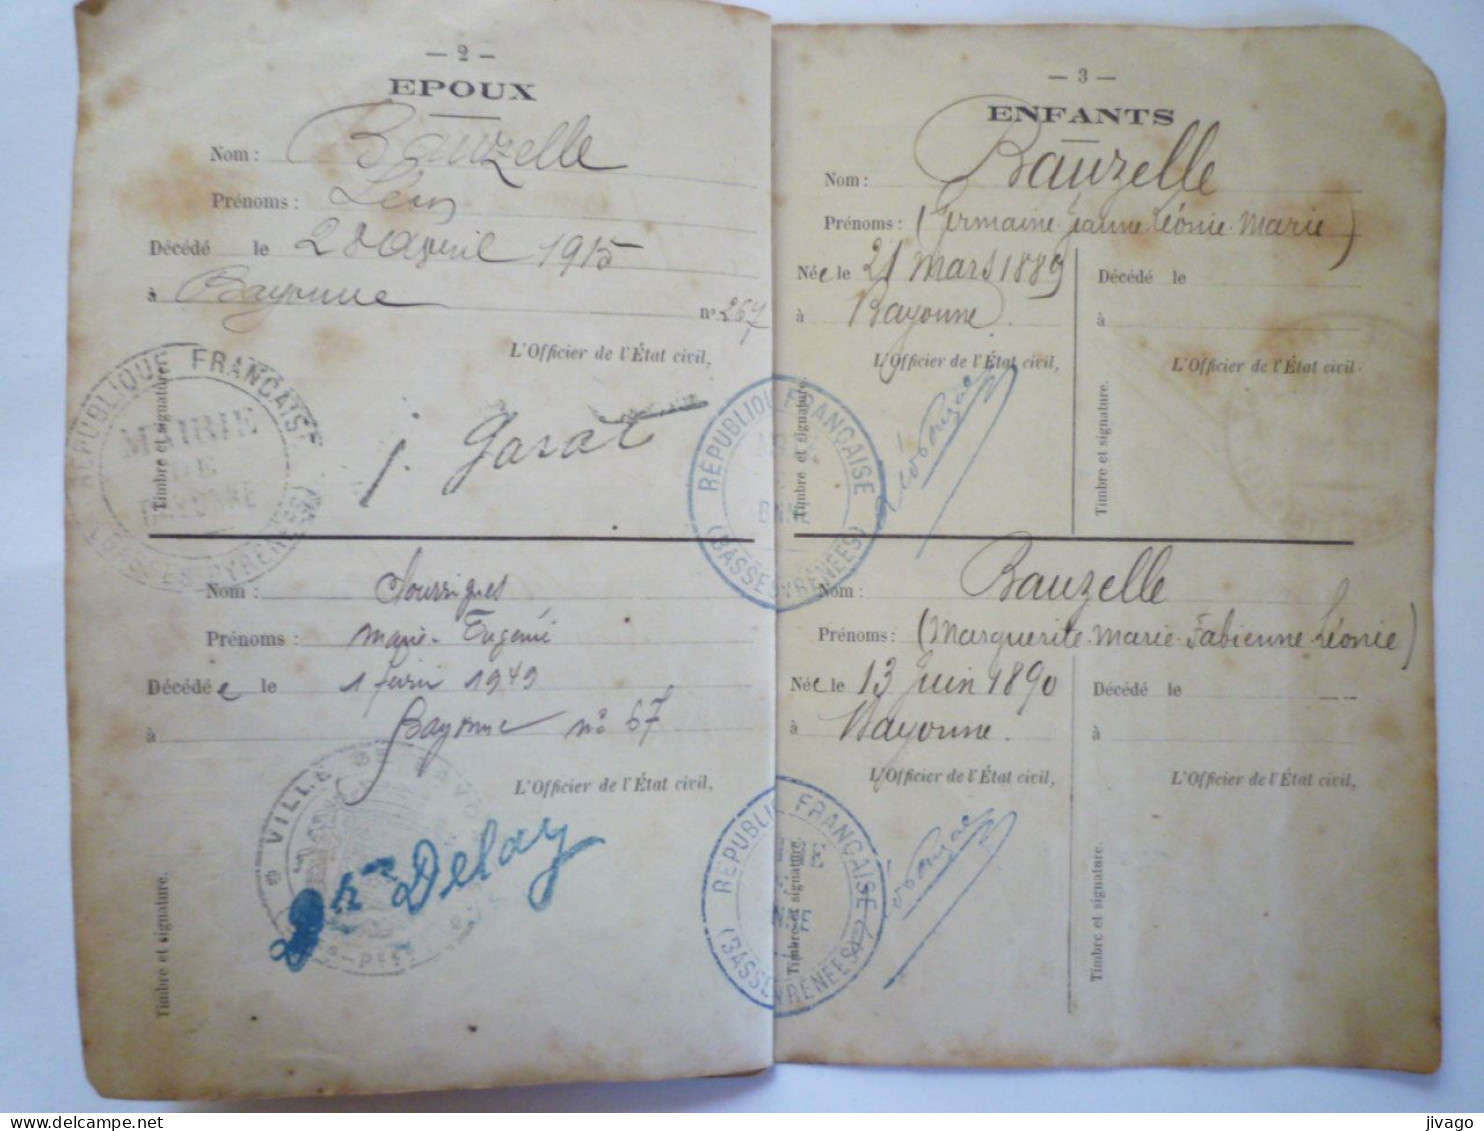 — 2 —
EPOUX
Nom : Bauzelle
Prénoms : Léon
Décédé le 28 avril 1915
à Bayonne n° 267
L'Officier de l'État civil,
Timbre et signature.
RÉPUBLIQUE FRANÇAISE
MAIRIE
DE
BAYONNE
J. Garat
Nom : Sourrigues
Prénoms : Marie-Eugénie
Décédée le 1 1949
à Bayonne n° 67
L'Officier de l'État civil,
Timbre et signature.
VILLE
Delay
— 3 —
ENFANTS
Nom : Bauzelle
Prénoms : (Germaine Jeanne Léonie Marie)
Née le 21 Mars 1889
à Bayonne.
L'Officier de l'État civil,
Timbre et signature.
RÉPUBLIQUE FRANÇAISE
(BASSES PYRÉNÉES)
Décédé le
à
L'Officier de l'État civil.
Timbre et signature.
Nom : Bauzelle
Prénoms : (Marguerite Marie Fabienne Léonie)
Née le 13 Juin 1890
à Bayonne.
L'Officier de l'État civil,
Timbre et signature.
RÉPUBLIQUE FRANÇAISE
(BASSES PYRÉNÉES)
Décédé le
à
L'Officier de l'État civil,
Timbre et signature.
jivago
delcampe.net